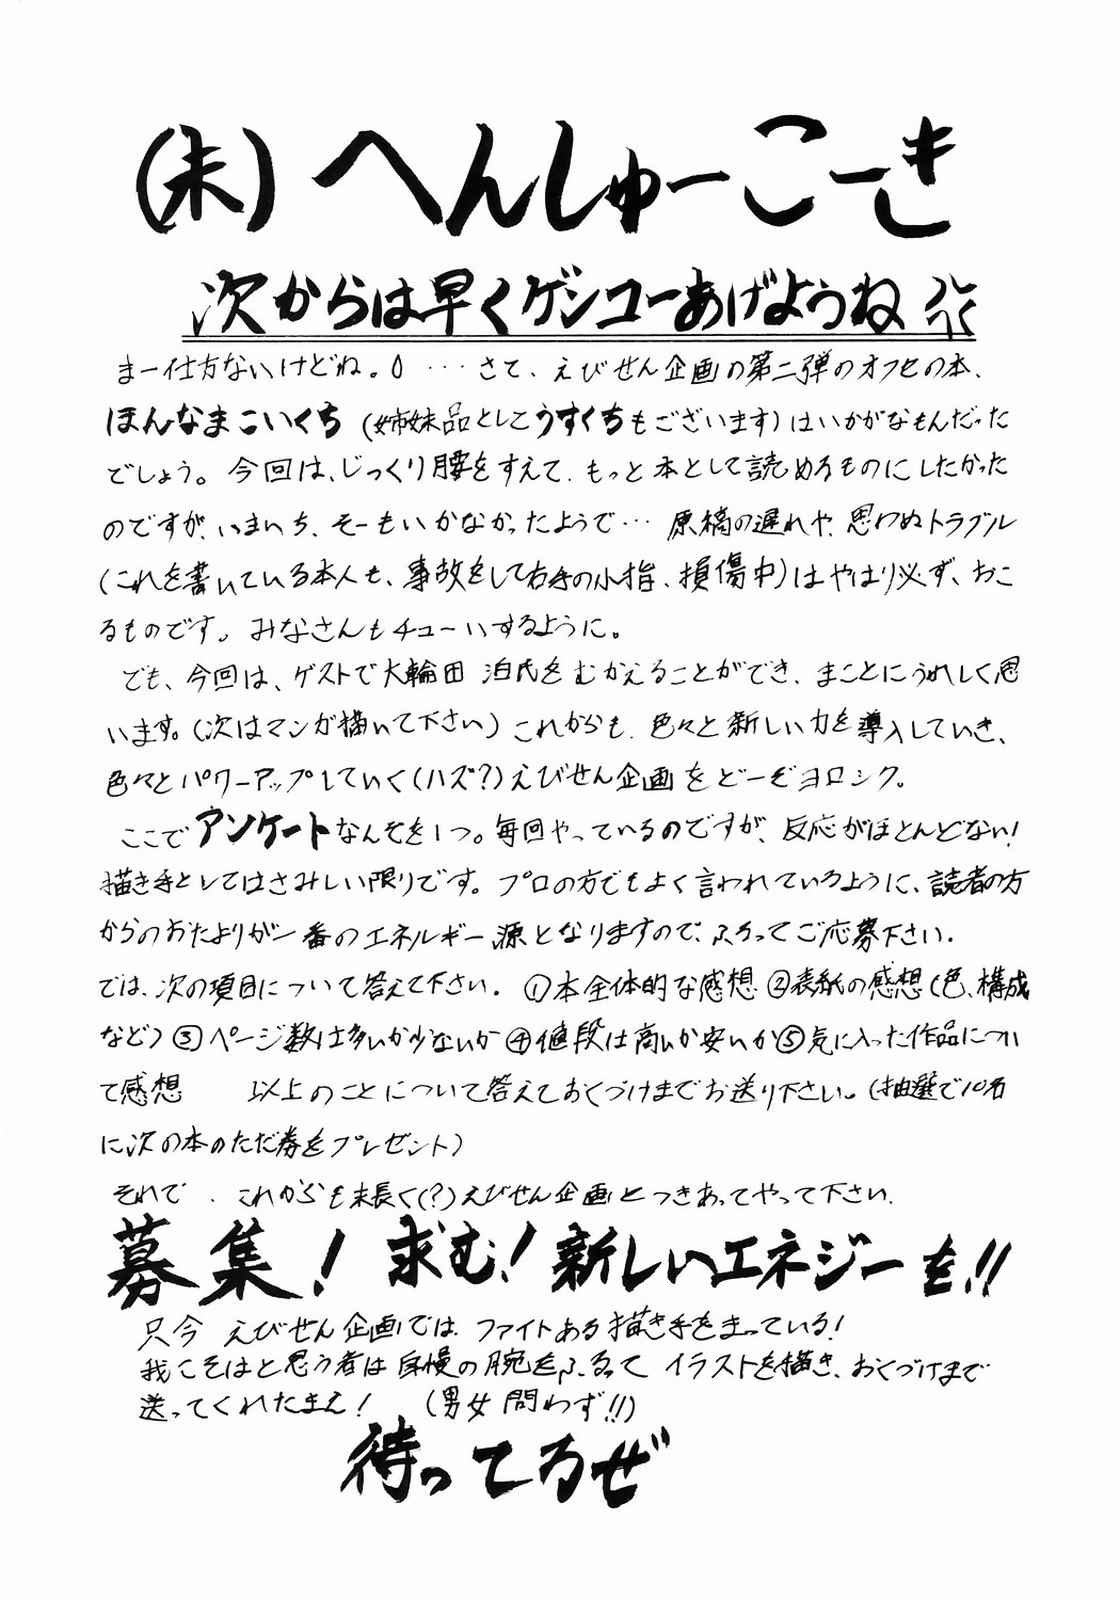 (未)へんしゅーこーき
次からは早くゲンコーあげようね
まー仕方ないけどね。0 …さて、えびせん企画の第二弾のオフセの本、
ほんなまこいくち (姉妹品としてうすくちもございます)はいかがなもんだった
でしょう。今回は、じっくり腰をすえて、もっと本として読めるものにしたかった
のですが、いまいち、そーもいかなかったようで… 原稿の遅れや、思わぬトラブル
(これを書いている本人も、事故をして右手の小指、損傷中)はやはり必ず、おこ
るものです。みなさんもチューいするように。
でも、今回は、ゲストで大輪田 泊氏をむかえることができ、まことにうれしく思
います。(次はマンガ描いて下さい)これからも、色々と新しい力を導入していき、
色々とパワーアップしていく(ハズ?)えびせん企画をどーぞヨロシク。
ここでアンケートなんぞを1つ。毎回やっているのですが、反応がほとんどない!
描き手としてはさみしい限りです。プロの方でもよく言われているように、読者の方
からのおたよりが一番のエネルギー源となりますので、ふるってご応募下さい.
では、次の項目について答えて下さい. ①本全体的な感想 ②表紙の感想(色、構成
など) ③ページ数は多いか少ないか ④値段は高いか安いか ⑤気に入った作品につい
て感想 以上のことについて答えておくづけまでお送り下さい。(抽選で10名
に次の本のただ券をプレゼント)
それで、これからも末長く(?)えびせん企画とつきあってやって下さい.
募集! 求む! 新しいエネジーを!!
只今 えびせん企画では ファイトある描き手をまっている!
我こそはと思う者は自慢の腕をふるって イラストを描き、おくづけまで
送ってくれたまえ! (男女問わず!!)
待ってるぜ